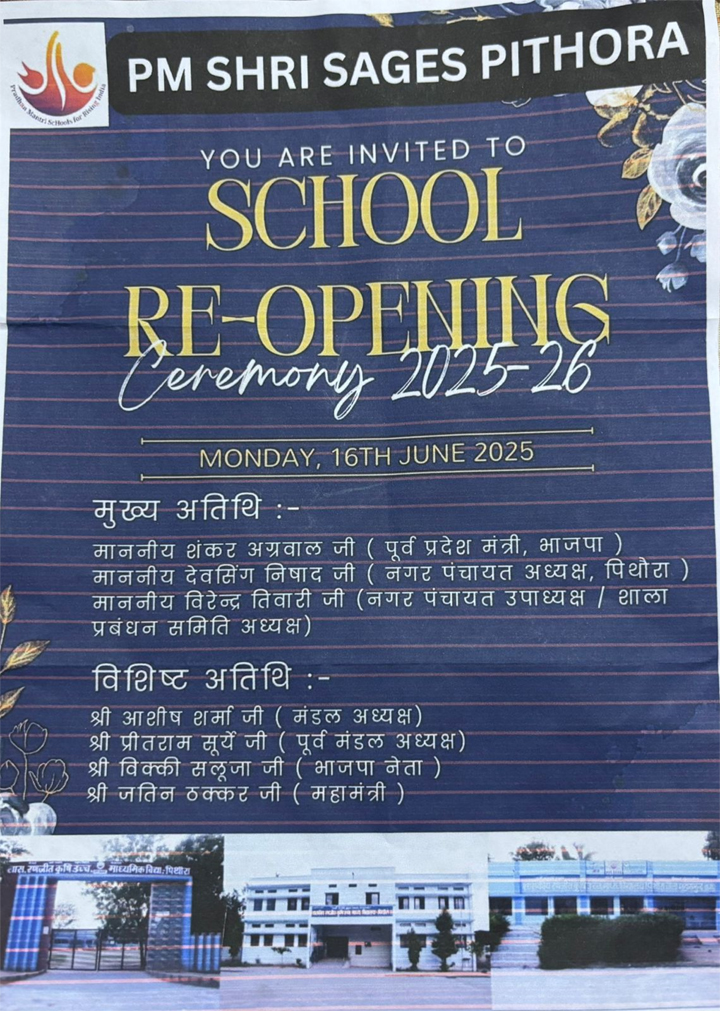 PM SHRI SAGES PITHORA
Pradhan Mantri Schools for Rising India
YOU ARE INVITED TO
SCHOOL
RE-OPENING
Ceremony 2025-26
MONDAY, 16TH JUNE 2025
मुख्य अतिथि :-
माननीय शंकर अग्रवाल जी ( पूर्व प्रदेश मंत्री, भाजपा )
माननीय देवसिंग निषाद जी ( नगर पंचायत अध्यक्ष, पिथौरा )
माननीय विरेन्द्र तिवारी जी (नगर पंचायत उपाध्यक्ष / शाला
प्रबंधन समिति अध्यक्ष)
विशिष्ट अतिथि :-
श्री आशीष शर्मा जी ( मंडल अध्यक्ष)
श्री प्रीतराम सूर्ये जी ( पूर्व मंडल अध्यक्ष)
श्री विक्की सलूजा जी ( भाजपा नेता )
श्री जतिन ठक्कर जी ( महामंत्री )
रणजीत कृषि उच्च. माध्यमिक विद्या. पिथौरा